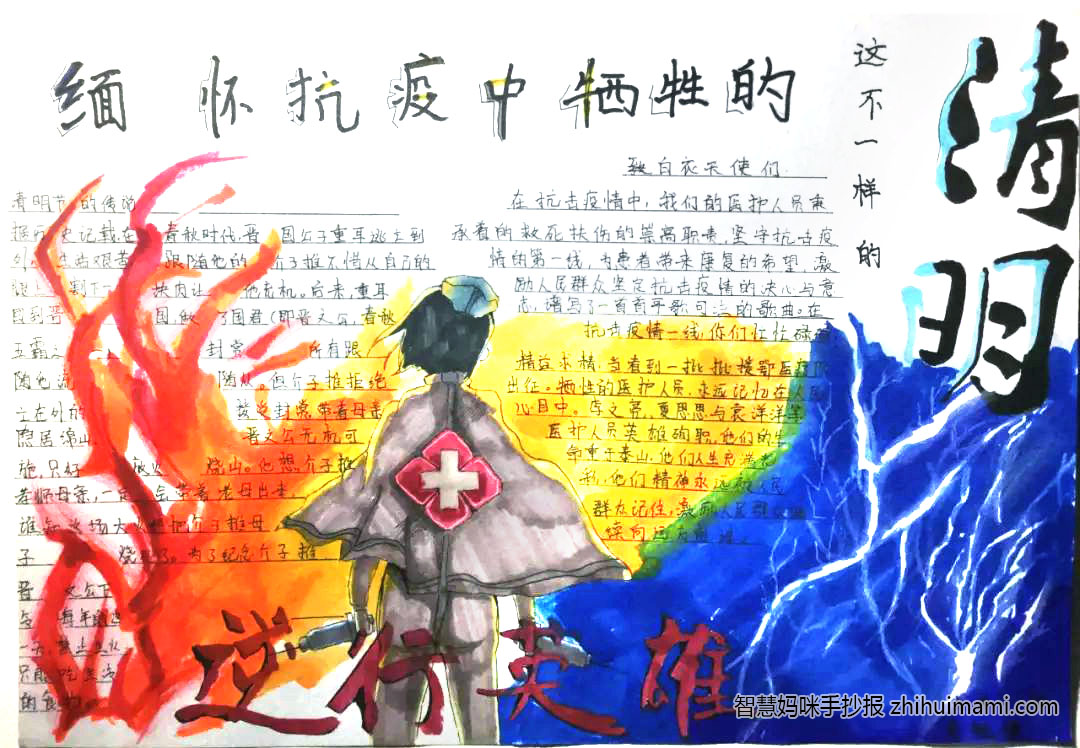 缅怀抗疫中牺牲的
这不一样的
清明
致白衣天使们
在抗击疫情中,我们的医护人员秉
承着的救死扶伤的崇高职责,坚守抗击疫
情的第一线,为患者带来康复的希望,激
励人民群众坚定抗击疫情的决心与意
志,谱写了一首首可歌可泣的歌曲。在
抗击疫情一线,你们忙忙碌碌
精益求精,当看到一批批援鄂医疗队
出征。牺牲的医护人员,永远记忆在人民
心目中。李文亮,夏思思与
医护人员英雄殉职,他们的生
命重于泰山,他们人生充满
利,他们精神永远被人民
群众记住,激励人民群众继
续向远方前进。
清明节的传说
据历史记载在 春秋时代,晋 国公子重耳逃亡到
外 生活艰苦 跟随他的 介子推不惜从自己的
腿上 割下一 块肉让 他充饥。后来,重耳
回到晋 国,做 了国君(即晋文公,春秋
五霸之 封赏 所有跟
随他流 随从。但介子推拒绝
接受封赏,带着母亲
隐居绵山,
晋文公无计可
施,只好 放火 烧山。他想,介子推
孝顺母亲,一定 会带着老母出来。
谁知这场大火却把介子推母
子 烧死了。为了纪念介子推
晋 文公下
令 每年的这
一天,禁止生火
只能吃生冷
的食物。
逆行英雄
智慧妈咪手抄报 zhihuimami.com